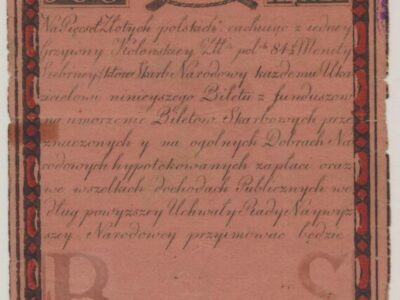 Na Pięćset Złotych polskich rachując z iedney
Grzywny Kolońskiey Złł. pol. 84¼ Monety
Srebrney, która Skarb Narodowy każdemu Oka-
zicielowi ninieyszego Biletu z funduszow
na umorzenie Biletow Skarbowych prze-
znaczonych y na ogolnych Dobrach Na-
rodowych hypotekowanych zapłaci oraz
we wszelkich dochodach Publicznych we-
dług powyższey Uchwały Rady Naywyż-
szey Narodowey przyimować będzie
B S